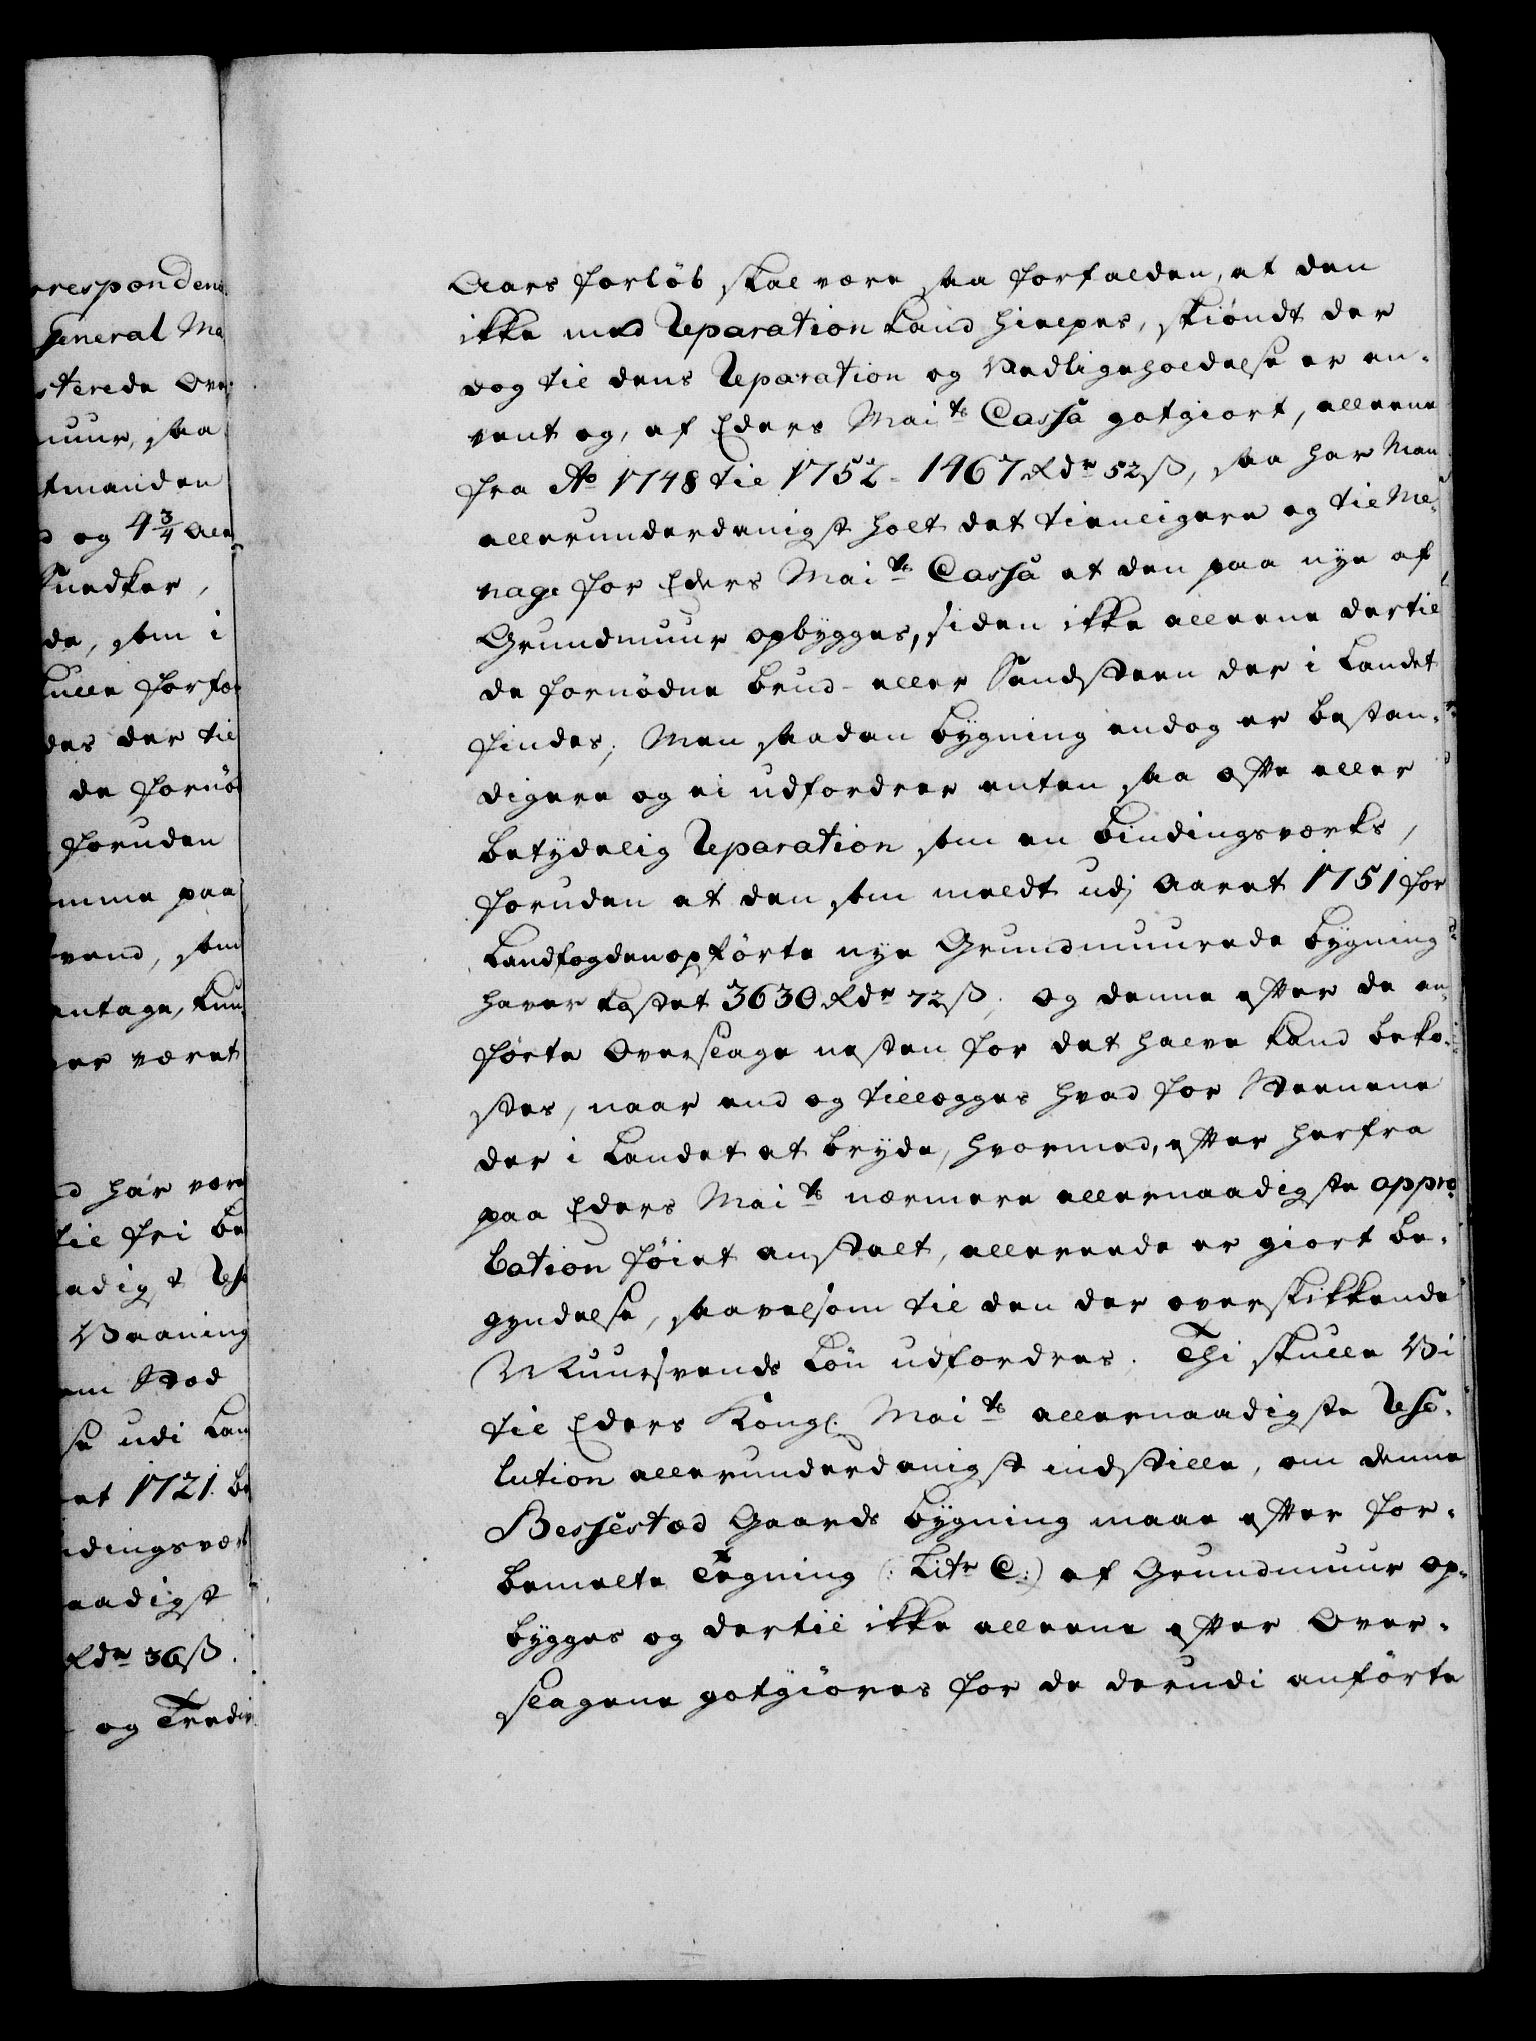 respondenc
General Ma
sterede Over
muur, saa
tmanden
og 4 3/4 Alen
Snedker,
de, som i
kulle forfær
des der til
de fornød
foruden
omme paa
vend, som
antage, kun
er været
d har være
til fri be
aadigst Res
Vaaning
em Stod
se udi Lan
et 1721. be
indingsverk
aadigst
Rdr 36 ß.
og Tredie
Aars forløb skal være saa forfalden, at den
ikke med Reparation kand hielpes, skiøndt der
dog til dens Reparation og Vedligeholdelse er an-
vent og, af Eders Maits Cassa gotgiort, alleene
fra Ao 1748 til 1752 - 1467 Rdr 52 ß, saa har Man
allerunderdanigst holt det tienligere og til Me-
nage for Eders Maits Cassa at den paa nye af
Grundmuur opbygges, siden ikke alleene dertil
de fornødne brud- eller Sandsteen der i Landet
findes; Men saadan bygning endog er bestan-
digere og ei udfordrer enten saa ofte eller
betydelig Reparation som en bindingsverks,
foruden at den som meldt udj Aaret 1751 for
Landfogden opførte nye Grundmuurede bygning
haver kostet 3630 Rdr 72 ß, og denne efter de an-
førte Overslage nesten for det halve kand beko-
stes, naar end og tillegges hvad for Steenene
der i Landet at bryde, hvormed, efter herfra
paa Eders Maits nærmere allernaadigste appro-
bation føiet anstalt, allereede er giort be-
gyndelse, saavelsom til den der overskikkende
Muursvends Løn udfordres. Thi skulle Vi
til Eders Kongl. Maits allernaadigste Reso-
lution allerunderdanigst indstille, om denne
Bessestæd Gaards bygning maae efter for-
bemelte Tegning (: Litr C:) af Grundmuur op-
bygges og dertil ikke alleene efter Over-
slagene gotgiøres for de derudi anførte